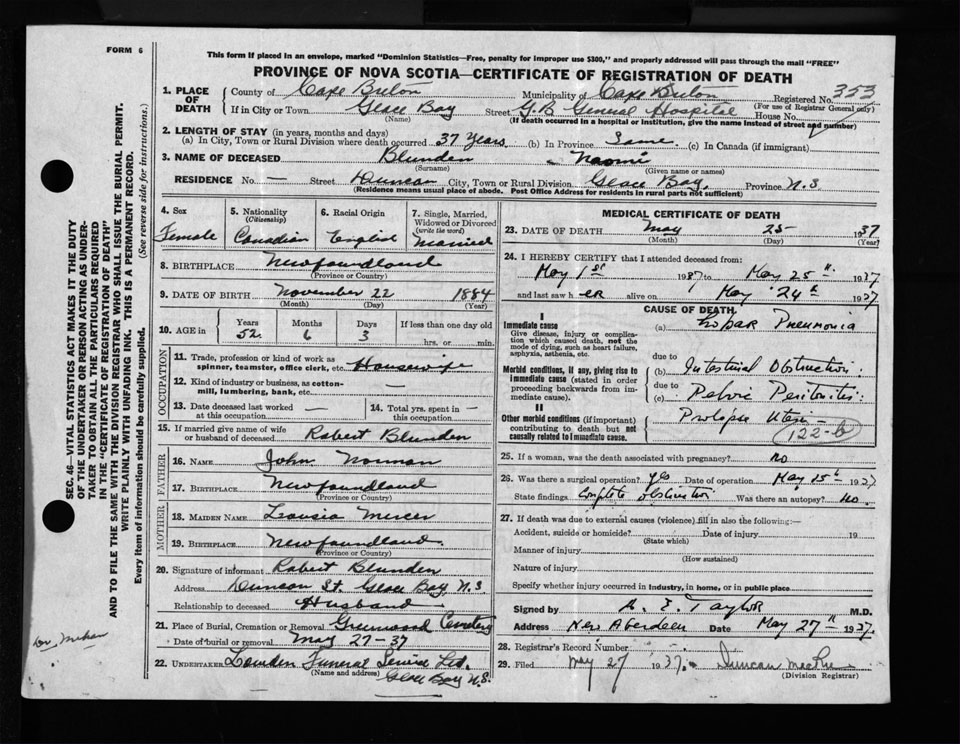 FORM 6
This form if placed in an envelope, marked "Dominion Statistics—Free, penalty for improper use $300," and properly addressed will pass through the mail "FREE"
PROVINCE OF NOVA SCOTIA—CERTIFICATE OF REGISTRATION OF DEATH
1. PLACE OF DEATH County of Cape Breton Municipality of Cape Breton Registered No. 353
(For use of Registrar General only)
If in City or Town Glace Bay Street G.B. General Hospital House No.
(Name) (If death occurred in a hospital or institution, give the name instead of street and number)
2. LENGTH OF STAY (in years, months and days)
(a) In City, Town or Rural Division where death occurred 37 Years (b) In Province Same (c) In Canada (if immigrant)
3. NAME OF DECEASED Blunden - Naomi
(Surname) (Given name or names)
RESIDENCE No. — Street Duncan City, Town or Rural Division Glace Bay, Province N.S
(Residence means usual place of abode. Post Office Address for residents in rural parts not sufficient)
4. Sex Female
5. Nationality (Citizenship) Canadian
6. Racial Origin English
7. Single, Married, Widowed or Divorced (write the word) Married
8. BIRTHPLACE Newfoundland
(Province or Country)
9. DATE OF BIRTH November 22 1884
(Month) (Day) (Year)
10. AGE in Years 52 Months 6 Days 3 If less than one day old hrs. or min.
OCCUPATION
11. Trade, profession or kind of work as spinner, teamster, office clerk, etc. Housewife
12. Kind of industry or business, as cotton-mill, lumbering, bank, etc. —
13. Date deceased last worked at this occupation —
14. Total yrs. spent in this occupation —
15. If married give name of wife or husband of deceased Robert Blunden
FATHER
16. NAME John Norman
17. BIRTHPLACE Newfoundland
(Province or Country)
MOTHER
18. MAIDEN NAME Mercer
19. BIRTHPLACE Newfoundland
(Province or Country)
20. Signature of informant Robert Blunden
Address Duncan St. Glace Bay, N.S.
Relationship to deceased Husband
21. Place of Burial, Cremation or Removal Greenwood Cemetery
Date of burial or removal May 27-37
22. UNDERTAKER Funeral Service Ltd.
(Name and address) Glace Bay N.S.
MEDICAL CERTIFICATE OF DEATH
23. DATE OF DEATH May 25 1937
(Month) (Day) (Year)
24. I HEREBY CERTIFY that I attended deceased from:
May 1st 1937 to May 25th 1937
and last saw her alive on May 24th 1937
CAUSE OF DEATH
I
Immediate cause
Give disease, injury or complication which caused death, not the mode of dying, such as heart failure, asphyxia, asthenia, etc.
(a) Lobar Pneumonia
Morbid conditions, if any, giving rise to immediate cause (stated in order proceeding backwards from immediate cause).
due to
(b) Intestinal Obstruction
due to
(c) Pelvic Peritonitis
II
Other morbid conditions (if important) contributing to death but not causally related to immediate cause.
Prolapse Uteri
122-b
25. If a woman, was the death associated with pregnancy? no
26. Was there a surgical operation? yes Date of operation May 15th 1937
State findings Complete obstruction Was there an autopsy? no.
27. If death was due to external causes (violence) fill in also the following:—
Accident, suicide or homicide? Date of injury 19
(State which)
Manner of injury
(How sustained)
Nature of injury
Specify whether injury occurred in industry, in home, or in public place
Signed by A. E. Taylor M.D.
Address New Aberdeen Date May 27th 1937.
28. Registrar's Record Number
29. Filed May 27 1937. Duncan
(Division Registrar)
SEC. 46—VITAL STATISTICS ACT MAKES IT THE DUTY
OF THE UNDERTAKER OR PERSON ACTING AS UNDER-
TAKER TO OBTAIN ALL THE PARTICULARS REQUIRED
IN THE "CERTIFICATE OF REGISTRATION OF DEATH"
AND TO FILE THE SAME WITH THE DIVISION REGISTRAR WHO SHALL ISSUE THE BURIAL PERMIT.
WRITE PLAINLY WITH UNFADING INK. THIS IS A PERMANENT RECORD.
Every item of information should be carefully supplied. (See reverse side for instructions.)